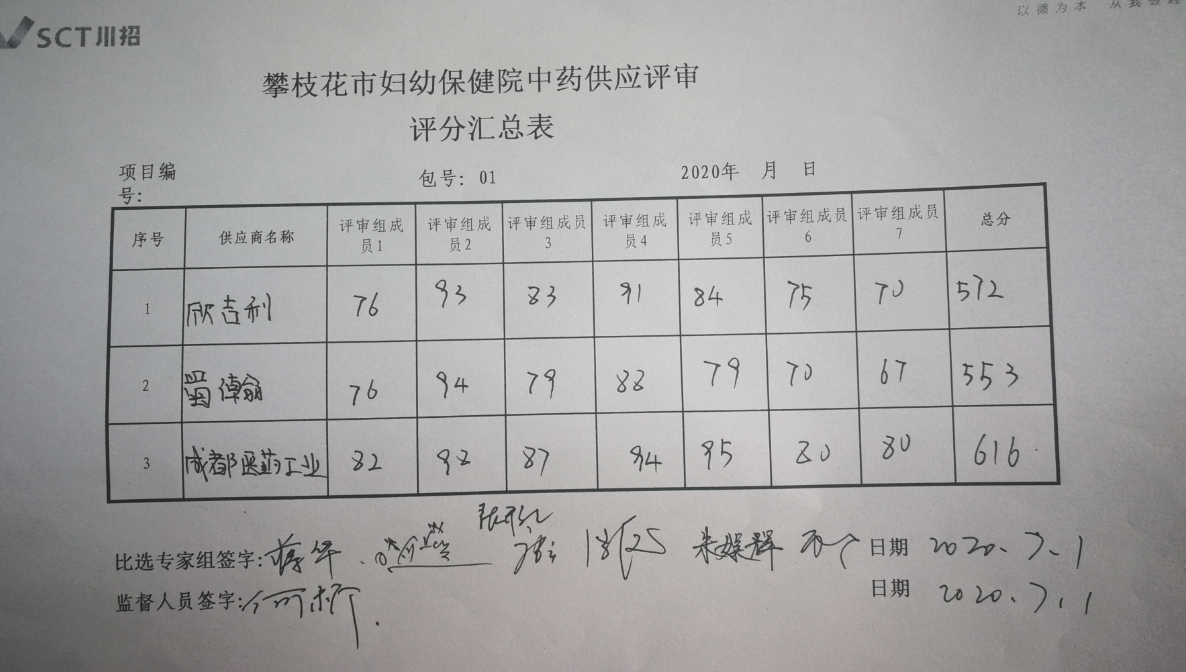 SCT川招
以德为本
攀枝花市妇幼保健院中药供应评审
评分汇总表
项目编号: 包号: 01 2020年 月 日
序号 供应商名称 评审组成员1 评审组成员2 评审组成员3 评审组成员4 评审组成员5 评审组成员6 评审组成员7 总分
1 欣吉利 76 93 83 91 84 75 70 572
2 蜀 76 94 79 88 79 70 67 553
3 成都医药工业 82 98 87 94 95 80 80 616
比选专家组签字: 日期 2020.7.1
监督人员签字: 日期 2020.7.1